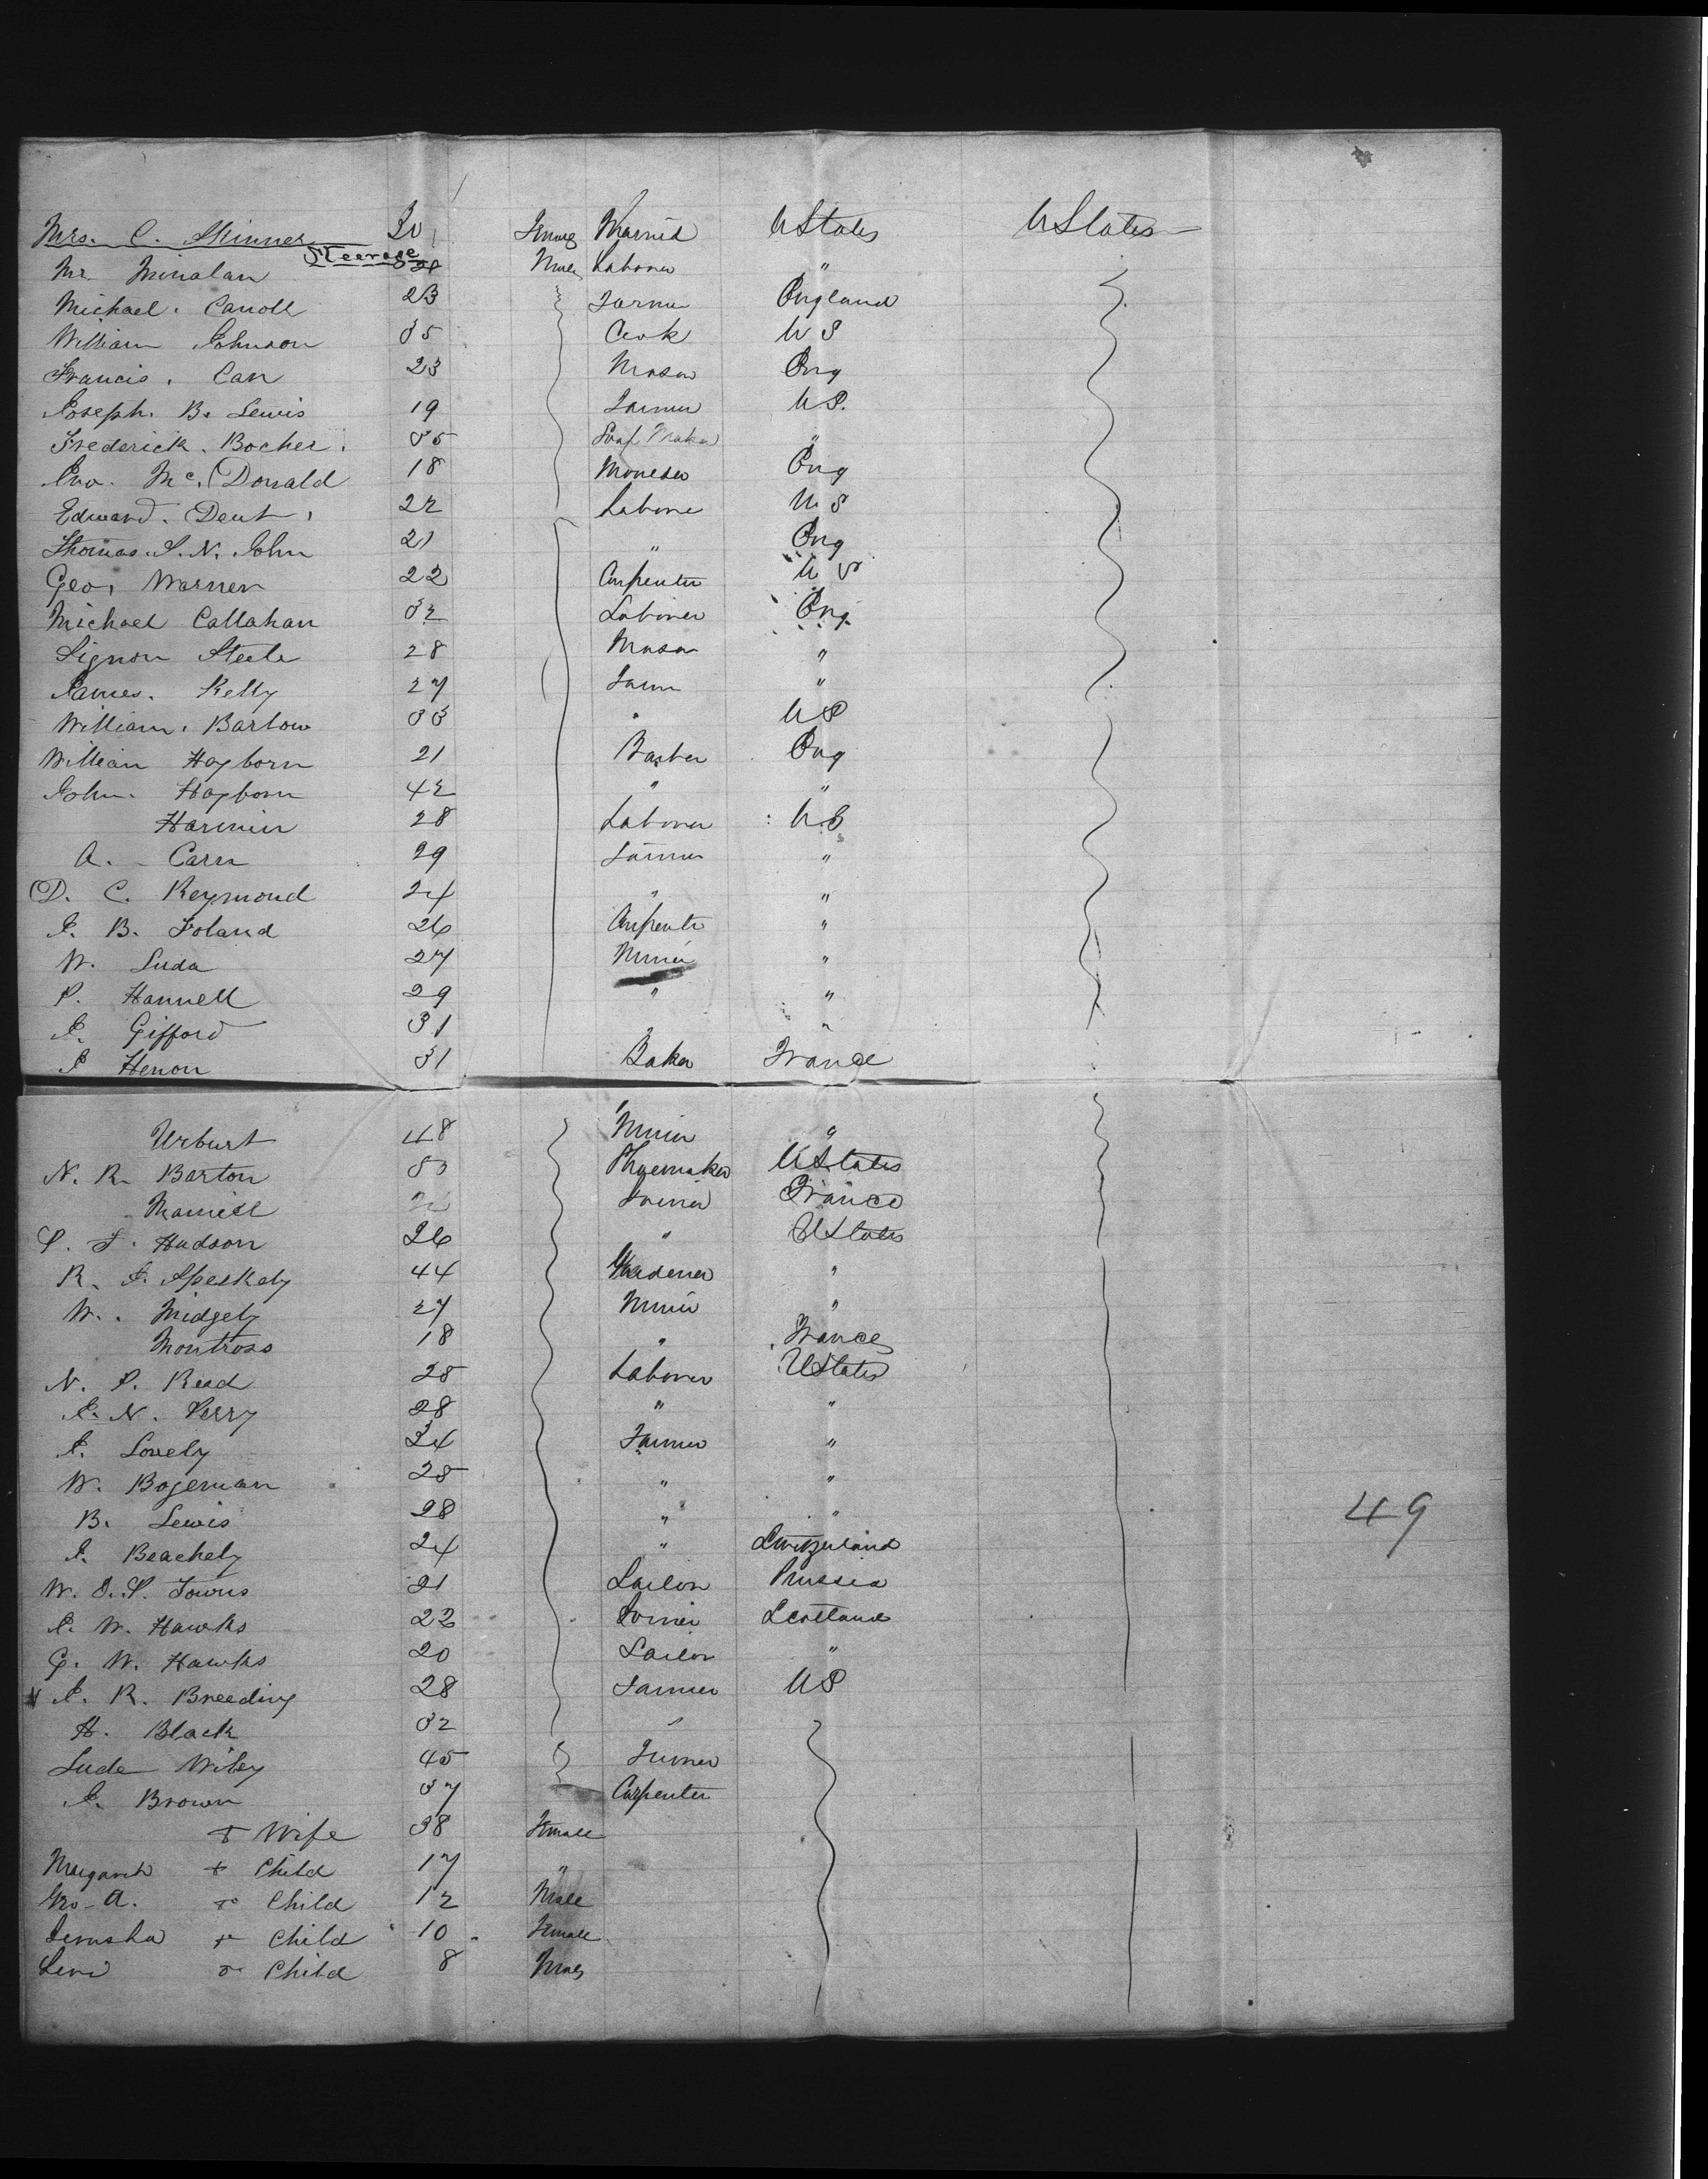 Mrs. C. Skinner 30 Female Married UStates UStates
Steerage
Mr Minalan Male Laborer "
Michael. Caroll 23 Farmer England
William Johnson 35 Cook U S
Francis. Carr 23 Mason Eng
Joseph. B. Lewis 19 Farmer U S.
Frederick. Bocher. 35 Soap Maker "
Jno. Mc. Donald 18 Moulder Eng
Edward. Dent. 22 Laborer U S
Thomas. S. N. John 21 " Eng
Geo, Warner 22 Carpenter U S
Michael Callahan 32 Laborer Eng.
Steele 28 Mason "
James. Kelly 27 Farm "
William. Barlow 33 " U S
William Hayborn 21 Barber Eng
John. Hayborn 42 " "
Harmin 28 Laborer U S
A. Carn 29 Farmer "
D. C. Reymond 24 " "
J. B. Foland 26 Carpenter "
W. Luda 27 Miner "
P. Hannell 29 " "
J. Gifford 31 " "
J Henon 31 Baker France
Urburt 48 Miner "
N. R. Barton Shoemaker UStates
France
S. F. Hudson 26 " UStates
R. J. 44 Gardener "
W. Midgely 27 Miner "
Montross 18 " France
N. S. Read 25 Laborer UStates
J. N. Perry 28 " "
J. Lovely 34 Farmer "
W. Bogeman 25 " "
B. Lewis 28 " "
49
J. Beachely 24 " Switzerland
W. J. S. Towns 21 Sailor Prussia
J. W. Hawks 22 Scotland
G. W. Hawks 20 Sailor "
J. R. Breeding 28 Farmer U S
H. Black 32 "
Lude Wiley 45
J. Brown 37 Carpenter
+ Wife 38 Female
Margaret + Child 17 "
Geo. A. + Child 12 Male
Jerusha + Child 10 Female
Levi + Child 8 Male